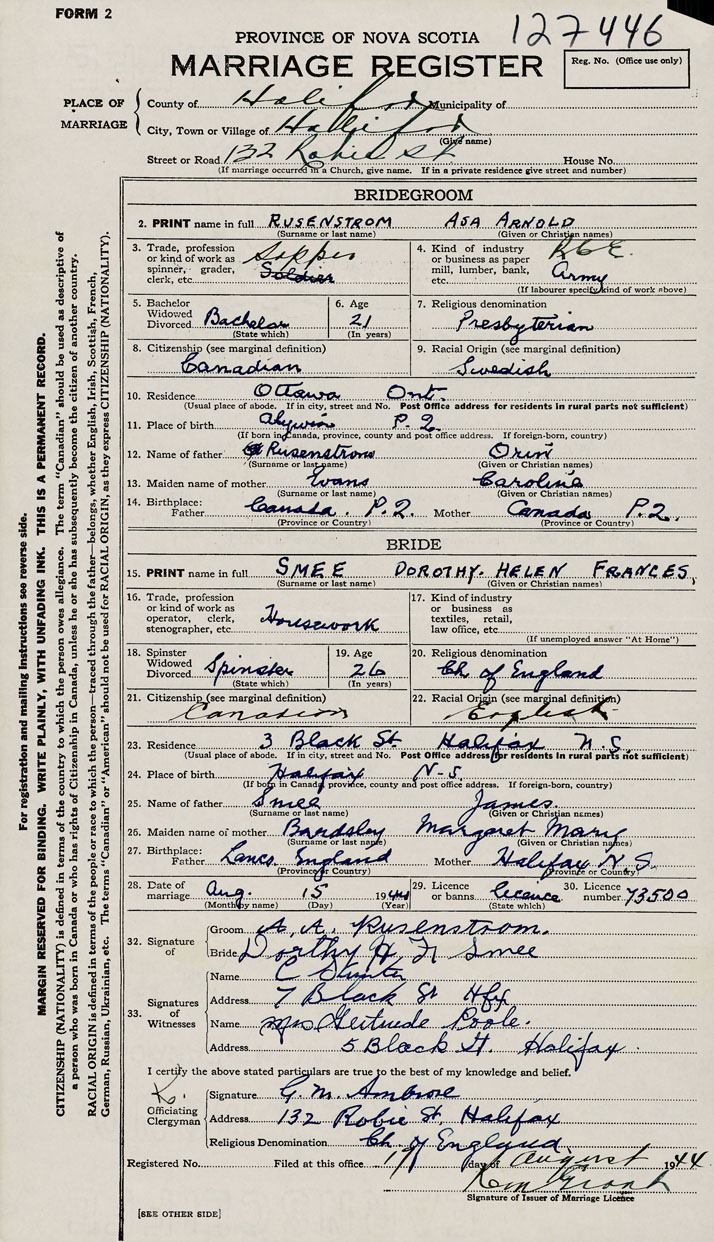 FORM 2
127446
PROVINCE OF NOVA SCOTIA
MARRIAGE REGISTER
Reg. No. (Office use only)
PLACE OF MARRIAGE
County of Halifax Municipality of
City, Town or Village of Halifax
(Give name)
Street or Road 132 Robie St House No.
(If marriage occurred in a Church, give name. If in a private residence give street and number)
BRIDEGROOM
2. PRINT name in full RUSENSTROM ASA ARNOLD
(Surname or last name) (Given or Christian names)
3. Trade, profession or kind of work as spinner, grader, clerk, etc. Sapper Soldier
4. Kind of industry or business as paper mill, lumber, bank, etc. R.C.E. Army
(If labourer specify kind of work above)
5. Bachelor Widowed Divorced Bachelor
(State which)
6. Age 21
(In years)
7. Religious denomination
Presbyterian
8. Citizenship (see marginal definition)
Canadian
9. Racial Origin (see marginal definition)
Swedish
10. Residence Ottawa Ont.
(Usual place of abode. If in city, street and No. Post Office address for residents in rural parts not sufficient)
11. Place of birth Alywin P.Q.
(If born in Canada, province, county and post office address. If foreign-born, country)
12. Name of father Rusenstrom Orin
(Surname or last name) (Given or Christian names)
13. Maiden name of mother Evans Caroline
(Surname or last name) (Given or Christian names)
14. Birthplace: Father Canada. P.Q. Mother Canada P.Q.
(Province or Country) (Province or Country)
BRIDE
15. PRINT name in full SMEE DOROTHY. HELEN FRANCES,
(Surname or last name) (Given or Christian names)
16. Trade, profession or kind of work as operator, clerk, stenographer, etc. Housework
17. Kind of industry or business as textiles, retail, law office, etc.
(If unemployed answer "At Home")
18. Spinster Widowed Divorced Spinster
(State which)
19. Age 26
(In years)
20. Religious denomination
Ch of England
21. Citizenship (see marginal definition)
Canadian
22. Racial Origin (see marginal definition)
English
23. Residence 3 Black St Halifax N.S.
(Usual place of abode. If in city, street and No. Post Office address for residents in rural parts not sufficient)
24. Place of birth Halifax N-S.
(If born in Canada, province, county and post office address. If foreign-born, country)
25. Name of father Smee James.
(Surname or last name) (Given or Christian names)
26. Maiden name of mother Bardsley Margaret Mary
(Surname or last name) (Given or Christian names)
27. Birthplace: Father Lancs. England Mother Halifax N.S.
(Province or Country) (Province or Country)
28. Date of marriage Aug. 15 1944
(Month by name) (Day) (Year)
29. Licence or banns licence
(State which)
30. Licence number 73500
32. Signature of
Groom A. A. Rusenstrom.
Bride Dorthy H. F. Smee
33. Signatures of Witnesses
Name C
Address 7 Black St Hfx
Name Mrs Gertrude Poole.
Address 5 Black St. Halifax.
I certify the above stated particulars are true to the best of my knowledge and belief.
Officiating Clergyman
Signature G. M. Ambrose
Address 132 Robie St. Halifax
Religious Denomination Ch. of England.
Registered No. Filed at this office 17 day of August 1944
Signature of Issuer of Marriage Licence
[SEE OTHER SIDE]
For registration and mailing instructions see reverse side.
MARGIN RESERVED FOR BINDING. WRITE PLAINLY, WITH UNFADING INK. THIS IS A PERMANENT RECORD.
CITIZENSHIP (NATIONALITY) is defined in terms of the country to which the person owes allegiance. The term "Canadian" should be used as descriptive of
a person who was born in Canada or who has rights of Citizenship in Canada, unless he or she has subsequently become the citizen of another country.
RACIAL ORIGIN is defined in terms of the people or race to which the person—traced through the father—belongs, whether English, Irish, Scottish, French,
German, Russian, Ukrainian, etc. The terms "Canadian" or "American" should not be used for RACIAL ORIGIN, as they express CITIZENSHIP (NATIONALITY).